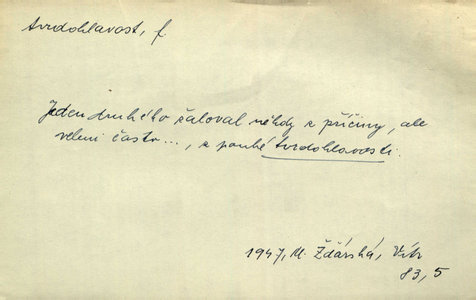 tvrdohlavost, f
Jeden druhého žaloval někdy z příčiny, ale
velmi často..., z pouhé tvrdohlavosti.
1947, M. Žďárská, Vítr
83, 5